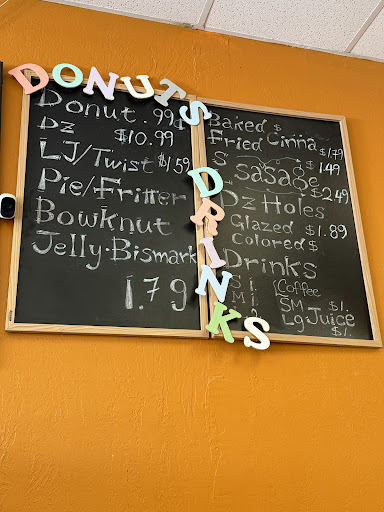 DONUTS
DRINKS
Donut .99¢
Dz $10.99
LJ/Twist $1.59
Pie/Fritter
Bowknut
Jelly-Bismark
1.79
Baked $
Fried Cinna $1.79
$1.49
Sasage $2.49
Dz Holes
Glazed $1.89
Colored $
Drinks
Coffee
SM $1.
Lg Juice
$1.